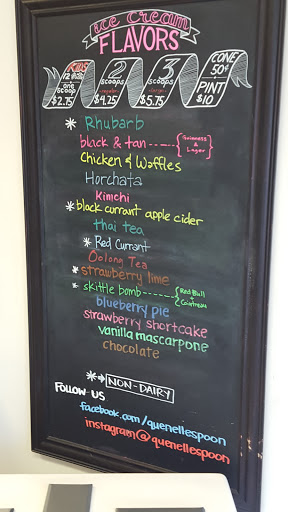 ice cream
FLAVORS
KIDS
one
scoop
$2.75
2
scoops
regular
$4.25
3
scoops
large
$5.75
CONE
50¢
PINT
$10
* Rhubarb
black & tan ------ { Guinness & Lager }
Chicken & Waffles
Horchata
Kimchi
* black currant apple cider
thai tea
* Red Currant
Oolong Tea
* strawberry lime
* skittle bomb ------- { Red Bull + Cointreau }
blueberry pie
strawberry shortcake
vanilla mascarpone
chocolate
* → NON-DAIRY
FOLLOW US
facebook.com/quenellespoon
instagram@quenellespoon